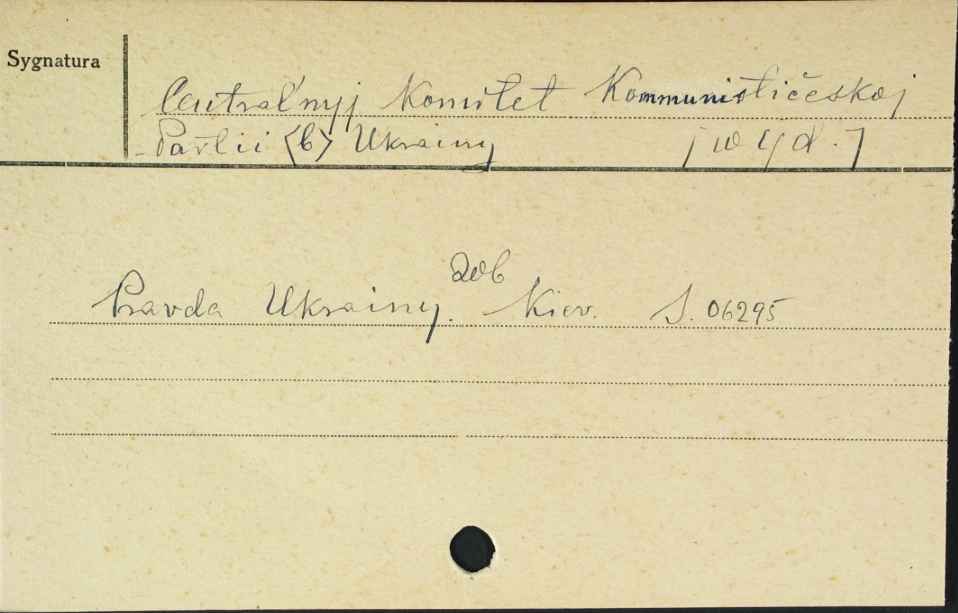 Sygnatura
Central'nyj Komitet Kommunističeskoj
Partii (b) Ukrainy [wyd.]
Zob
Pravda Ukrainy. Kiev. S. 06295